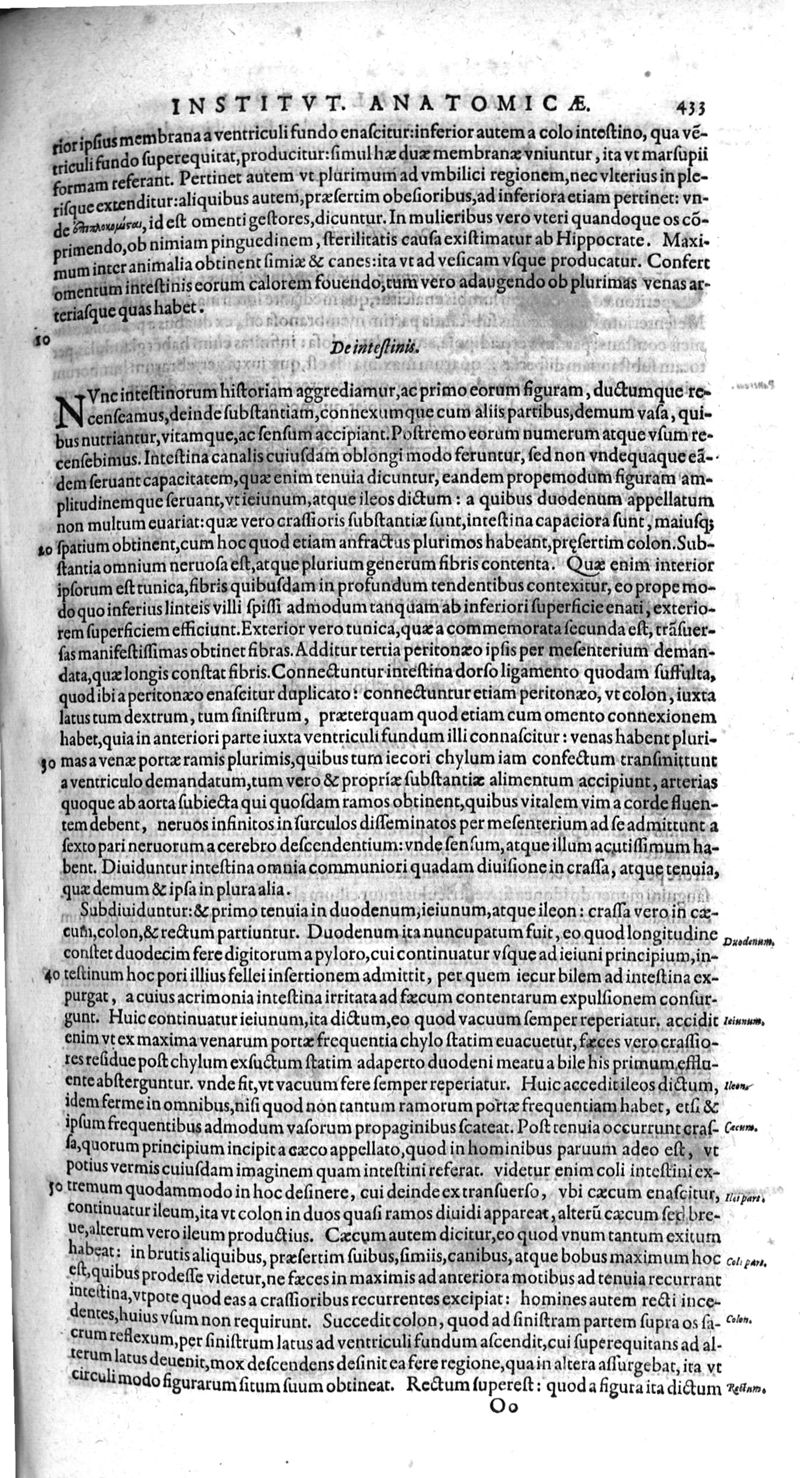 INSTITVT. ANATOMICÆ. 433
rior ipſius membrana a ventriculi fundo enaſcitur: inferior autem a colo inteſtino, qua vẽ-
triculi fundo ſuperequitat, producitur: ſimul hæ duæ membranæ vniuntur, ita vt marſupii
formam referant. Pertinet autem vt plurimum ad vmbilici regionem, nec vlterius in ple-
riſque extenditur: aliquibus autem, præſertim obeſioribus, ad inferiora etiam pertinet: vn-
de id eſt omenti geſtores, dicuntur. In mulieribus vero vteri quandoque os cõ-
primendo, ob nimiam pinguedinem, ſterilitatis cauſa exiſtimatur ab Hippocrate. Maxi-
mum inter animalia obtinent ſimiæ & canes: ita vt ad veſicam vſque producatur. Confert
omentum inteſtinis eorum calorem fouendo, tum vero adaugendo ob plurimas venas ar-
teriaſque quas habet.
10
De inteſtinis.
NVnc inteſtinorum hiſtoriam aggrediamur, ac primo eorum figuram, ductumque re-
cenſeamus, deinde ſubſtantiam, connexumque cum aliis partibus, demum vaſa, qui-
bus nutriantur, vitamque, ac ſenſum accipiant. Poſtremo eorum numerum atque vſum re-
cenſebimus. Inteſtina canalis cuiuſdam oblongi modo feruntur, ſed non vndequaque eã-
dem ſeruant capacitatem, quæ enim tenuia dicuntur, eandem propemodum figuram am-
plitudinemque ſeruant, vt ieiunum, atque ileos dictum: a quibus duodenum appellatum
non multum euariat: quæ vero craſſioris ſubſtantiæ ſunt, inteſtina capaciora ſunt, maiuſq;
20 ſpatium obtinent, cum hoc quod etiam anfractus plurimos habeant, pręſertim colon. Sub-
ſtantia omnium neruoſa eſt, atque plurium generum fibris contenta. Quæ enim interior
ipſorum eſt tunica, fibris quibuſdam in profundum tendentibus contexitur, eo prope mo-
do quo inferius linteis villi ſpiſſi admodum tanquam ab inferiori ſuperficie enati, exterio-
rem ſuperficiem efficiunt. Exterior vero tunica, quæ a commemorata ſecunda eſt, trãſuer-
ſas manifeſtiſſimas obtinet fibras. Additur tertia peritonæo ipſis per meſenterium deman-
data, quæ longis conſtat fibris. Connectuntur inteſtina dorſo ligamento quodam ſuffulta,
quod ibi a peritonæo enaſcitur duplicato: connectuntur etiam peritonæo, vt colon, iuxta
latus tum dextrum, tum ſiniſtrum, præterquam quod etiam cum omento connexionem
habet, quia in anteriori parte iuxta ventriculi fundum illi connaſcitur: venas habent pluri-
30 mas a venæ portæ ramis plurimis, quibus tum iecori chylum iam confectum tranſmittunt
a ventriculo demandatum, tum vero & propriæ ſubſtantiæ alimentum accipiunt, arterias
quoque ab aorta ſubiecta qui quoſdam ramos obtinent, quibus vitalem vim a corde fluen-
tem debent, neruos infinitos in ſurculos diſſeminatos per meſenterium ad ſe admittunt a
ſexto pari neruorum a cerebro deſcendentium: vnde ſenſum, atque illum acutiſſimum ha-
bent. Diuiduntur inteſtina omnia communiori quadam diuiſione in craſſa, atque tenuia,
quæ demum & ipſa in plura alia.
Subdiuiduntur: & primo tenuia in duodenum, ieiunum, atque ileon: craſſa vero in cæ-
cum, colon, & rectum partiuntur. Duodenum ita nuncupatum fuit, eo quod longitudine Duodenum.
conſtet duodecim fere digitorum a pyloro, cui continuatur vſque ad ieiuni principium, in-
40 teſtinum hoc pori illius fellei inſertionem admittit, per quem iecur bilem ad inteſtina ex-
purgat, a cuius acrimonia inteſtina irritata ad fæcum contentarum expulſionem conſur-
gunt. Huic continuatur ieiunum, ita dictum, eo quod vacuum ſemper reperiatur. accidit Ieiunum.
enim vt ex maxima venarum portæ frequentia chylo ſtatim euacuetur, fæces vero craſſio-
res reſidue poſt chylum exſuctum ſtatim adaperto duodeni meatu a bile his primum efflu-
ente abſterguntur. vnde fit, vt vacuum fere ſemper reperiatur. Huic accedit ileos dictum, Ileon.
idem ferme in omnibus, niſi quod non tantum ramorum portæ frequentiam habet, etſi &
ipſum frequentibus admodum vaſorum propaginibus ſcateat. Poſt tenuia occurrunt craſ- Cæcum.
ſa, quorum principium incipit a cæco appellato, quod in hominibus paruum adeo eſt, vt
potius vermis cuiuſdam imaginem quam inteſtini referat. videtur enim coli inteſtini ex-
50 tremum quodammodo in hoc deſinere, cui deinde ex tranſuerſo, vbi cæcum enaſcitur, Ilei pars.
continuatur ileum, ita vt colon in duos quaſi ramos diuidi appareat, alterũ cæcum ſed bre-
ue, alterum vero ileum productius. Cæcum autem dicitur, eo quod vnum tantum exitum
habeat: in brutis aliquibus, præſertim ſuibus, ſimiis, canibus, atque bobus maximum hoc Coli pars.
eſt, quibus prodeſſe videtur, ne fæces in maximis ad anteriora motibus ad tenuia recurrant
inteſtina, vtpote quod eas a craſſioribus recurrentes excipiat: homines autem recti ince-
dentes, huius vſum non requirunt. Succedit colon, quod ad ſiniſtram partem ſupra os ſa- Colon.
crum reflexum, per ſiniſtrum latus ad ventriculi fundum aſcendit, cui ſuperequitans ad al-
terum latus deuenit, mox deſcendens deſinit ea fere regione, qua in altera aſſurgebat, ita vt
circuli modo figurarum ſitum ſuum obtineat. Rectum ſupereſt: quod a figura ita dictum Rectum.
Oo